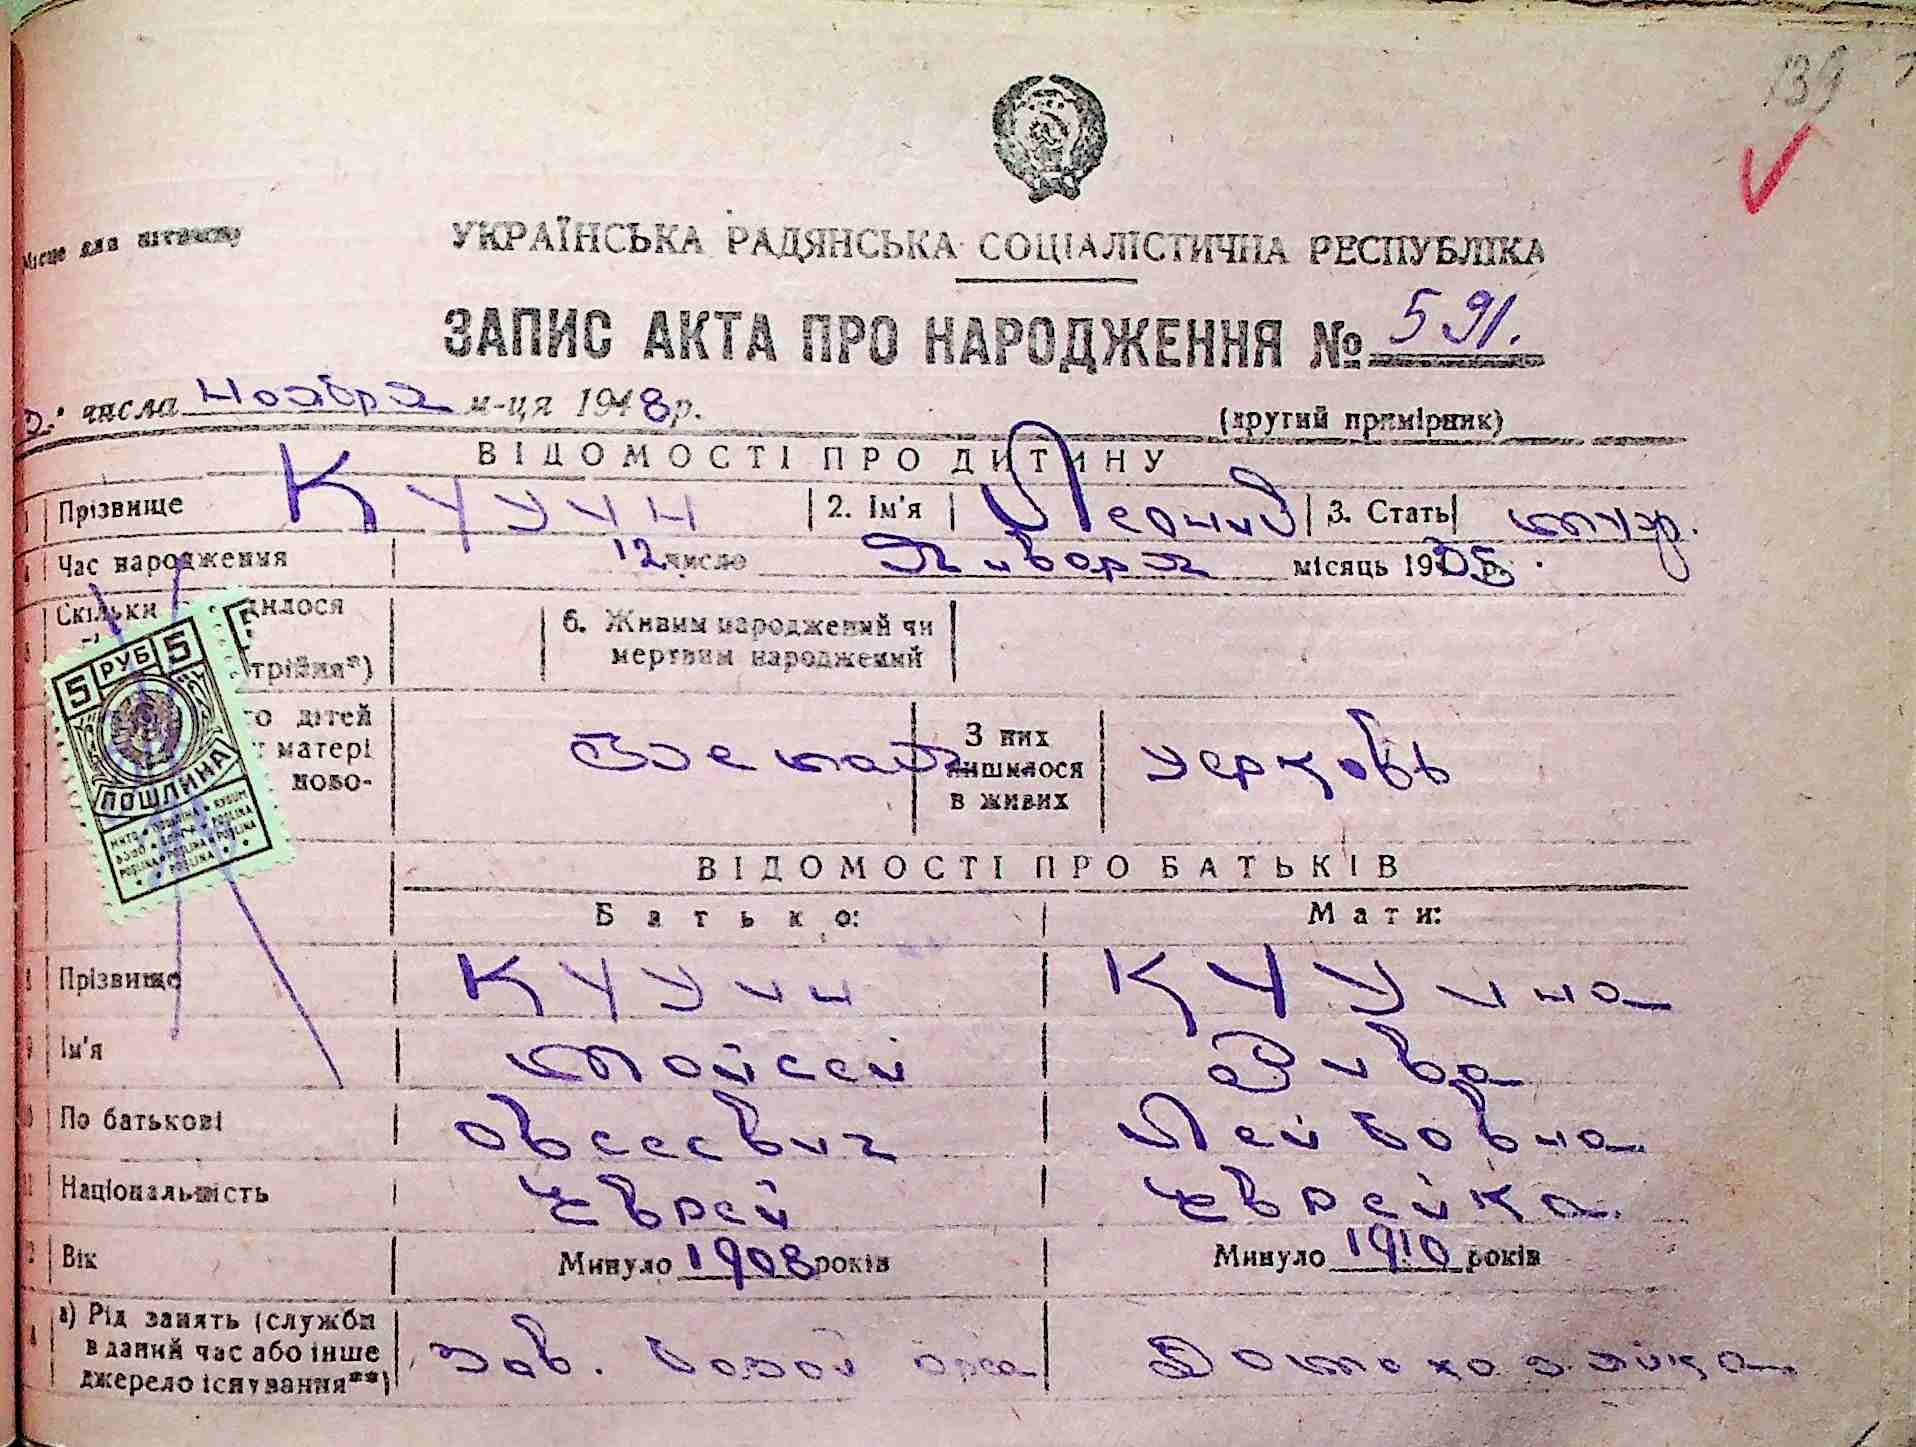 139
Місце для штампу
УКРАЇНСЬКА РАДЯНСЬКА СОЦІАЛІСТИЧНА РЕСПУБЛІКА
ЗАПИС АКТА ПРО НАРОДЖЕННЯ № 591.
числа Ноября м-ця 1948 р.
(другий примірник)
ВІДОМОСТІ ПРО ДИТИНУ
1 Прізвище Куцин 2. Ім'я Леонид 3. Стать муж.
4 Час народження 12 число Января місяць 1935 р.
5 Скільки дилося трійня*) 6. Живим народжений чи мертвим народжений
5 РУБ 5
ПОШЛИНА
7 го дітей матері ново- З них лишилося в живих
ВІДОМОСТІ ПРО БАТЬКІВ
Батько: Мати:
8 Прізвище Куцин Куцина
9 Ім'я Мойсей Рива
По батькові Овсеевич Лейбовна
11 Національність Еврей Еврейка
Вік Минуло 1908 років Минуло 1910 років
а) Рід занять (служби в даний час або інше джерело існування**) Зав. базой орса Домохозяйка